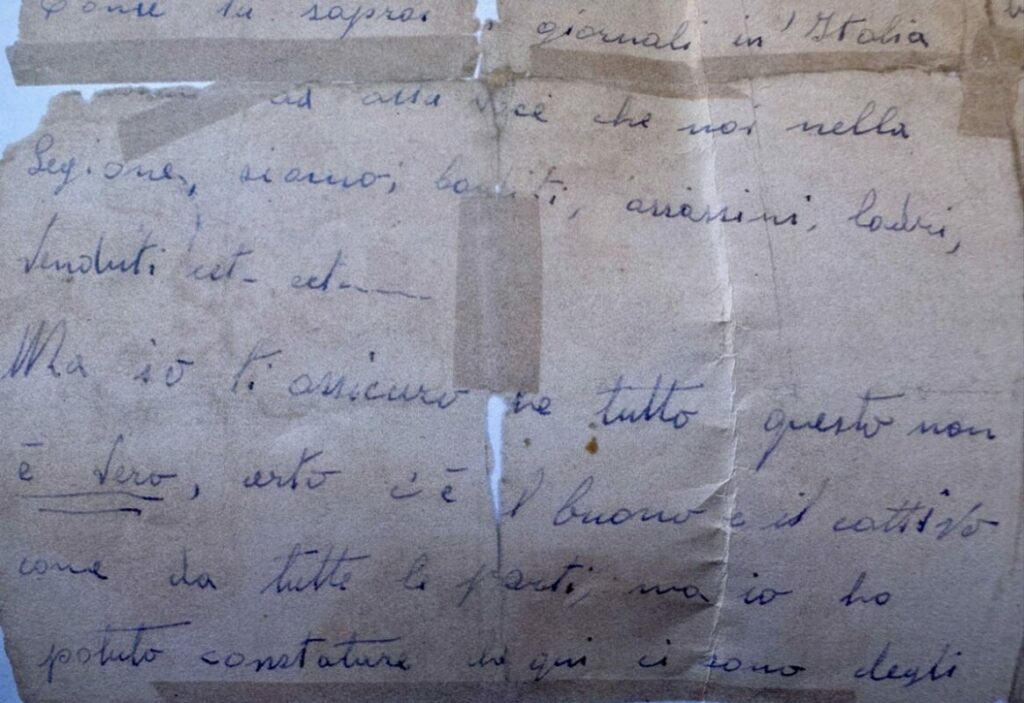 Come tu saprai i giornali in Italia
ad alta voce che noi nella
Legione, siamo, banditi, assassini, ladri,
venduti ect- ect------
Ma io ti assicuro che tutto questo non
è vero, certo c'è il buono e il cattivo
come da tutte le parti, ma io ho
potuto constatare che qui ci sono degli